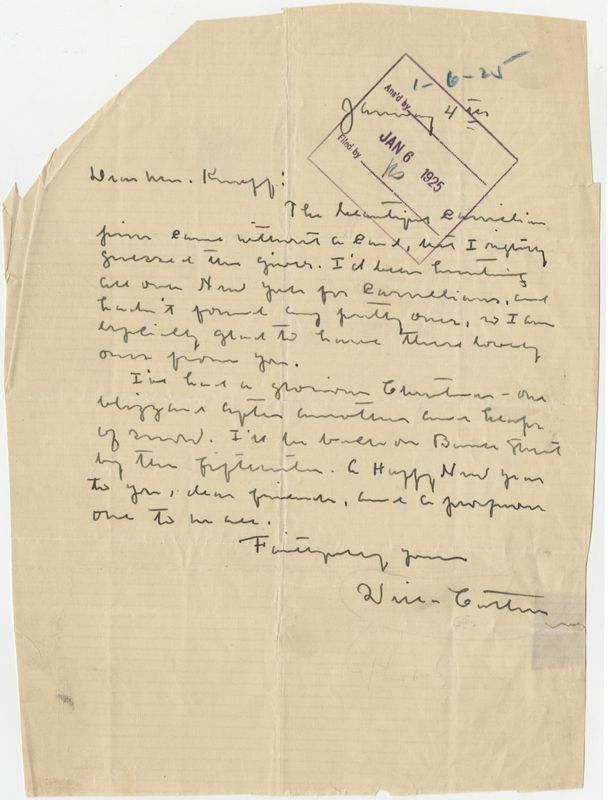 1-6-25
January 4th
Ans'd by
JAN 6 1925
Filed by
Dear Mr. Knopf:
The beautiful Carnelian
pins came without a card, but I rightly
guessed the giver. I'd been hunting
all over New York for Carnelians, and
hadn't found any pretty ones, so I am
especially glad to have these lovely
ones from you.
I've had a glorious Christmas - one
blizzard after another and heaps
of snow. I'll be back on Bank Street
by the fifteenth. A Happy New Year
to you, dear friends, and a prosperous
one to us all.
Faithfully yours
Willa Cather